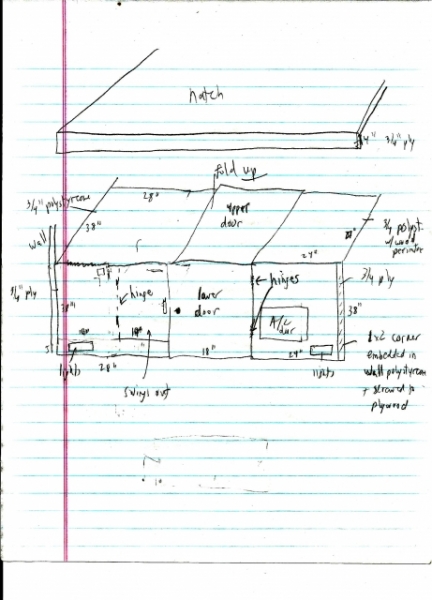 hatch
4"
3/4" ply
fold up
3/4" polystyrene
28"
upper
door
38"
24"
3/4 polyst.
w/wood
perimeter
wall
hinges
3/4" ply
3/4 ply
hinge
lower
door
38"
38"
A/C
2x2 corner
embedded in
wall polystyrene
+ screwed to
plywood
18"
24"
lights
28"
lights
swings out